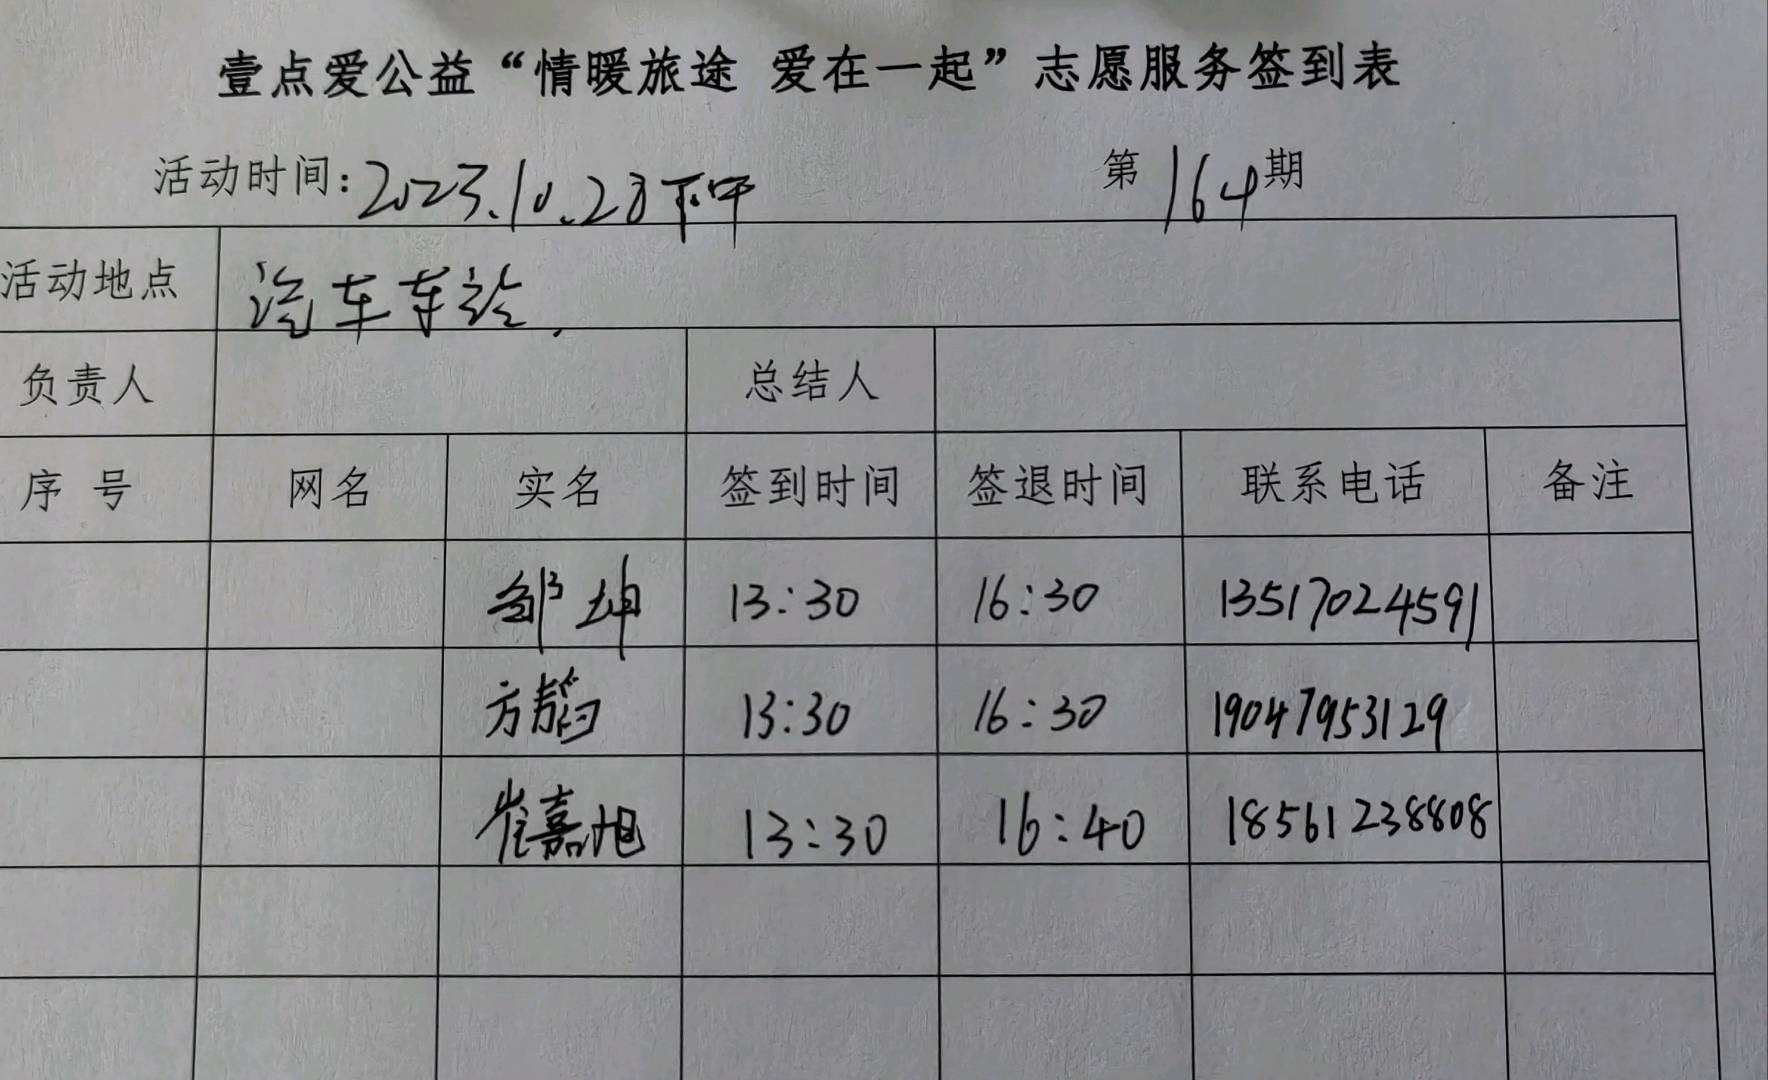 壹点爱公益“情暖旅途 爱在一起”志愿服务签到表
活动时间:2023.10.28下午 第164期
活动地点 汽车车站.
负责人 总结人
序号 网名 实名 签到时间 签退时间 联系电话 备注
邹坤 13:30 16:30 13517024591
方 13:30 16:30 19047953129
崔嘉旭 13:30 16:40 18561238808